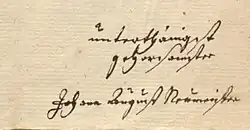 unterthänigst
gehorsamster
Johann August Neumeister